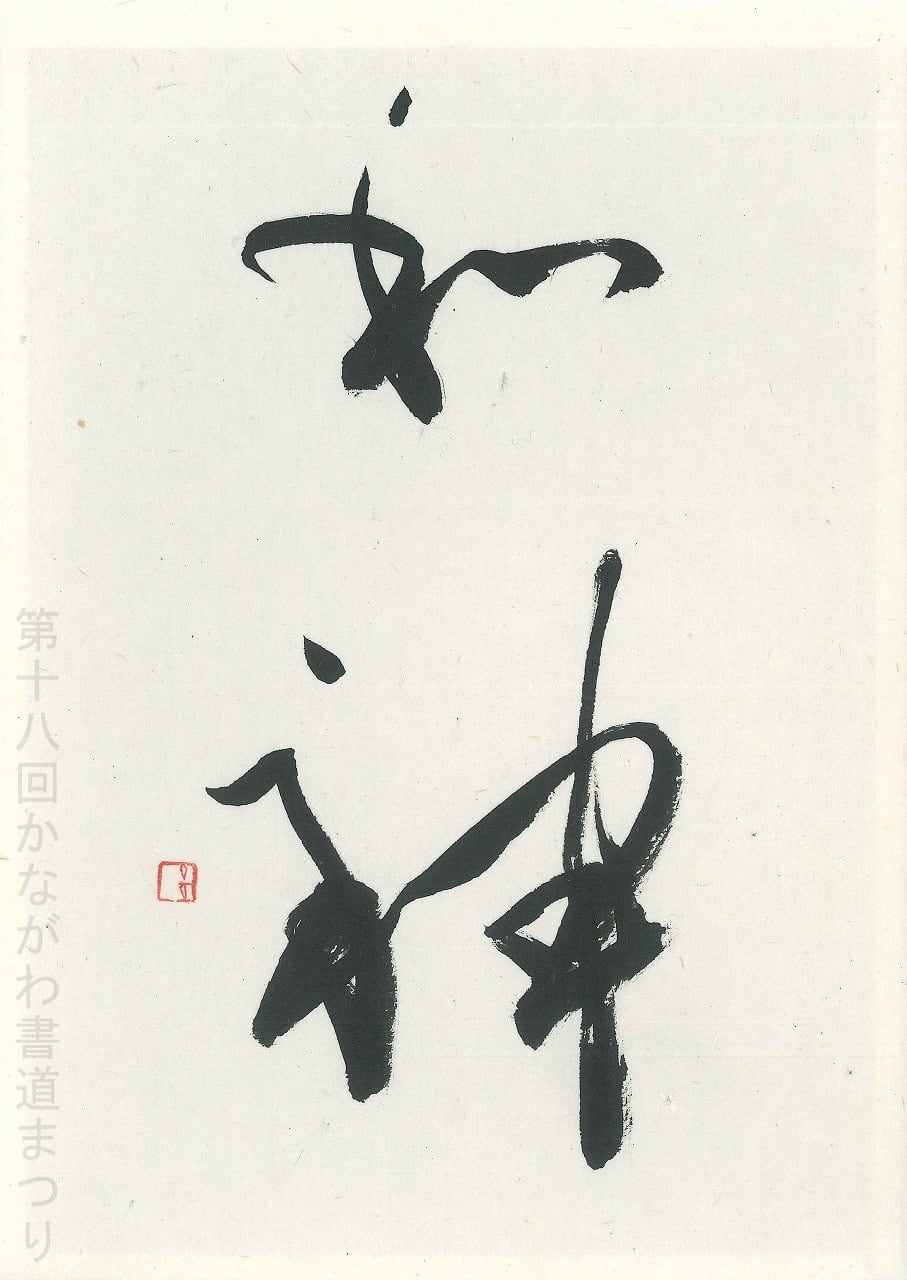 和神
第十八回かながわ書道まつり